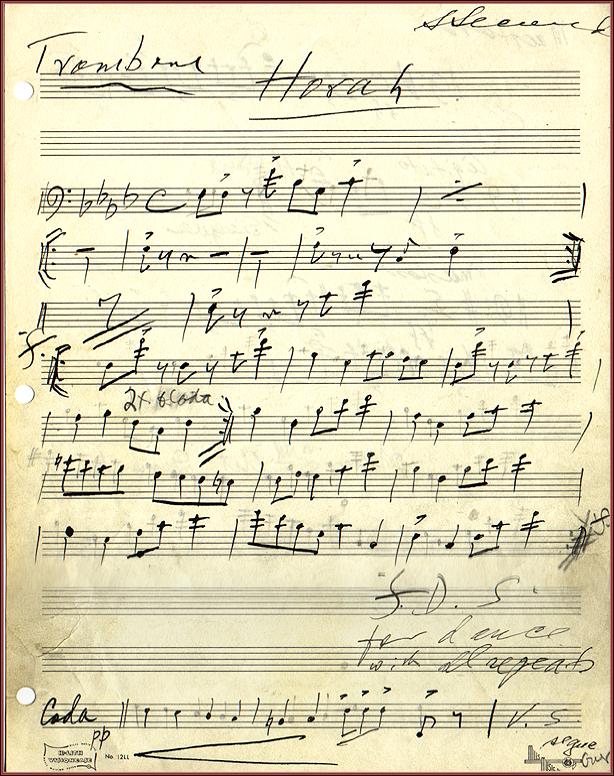 Trombone
Horah
2x to Coda
D. S.
for dance
with all repeats
Coda
V. S
pp
segue
No. 12LL